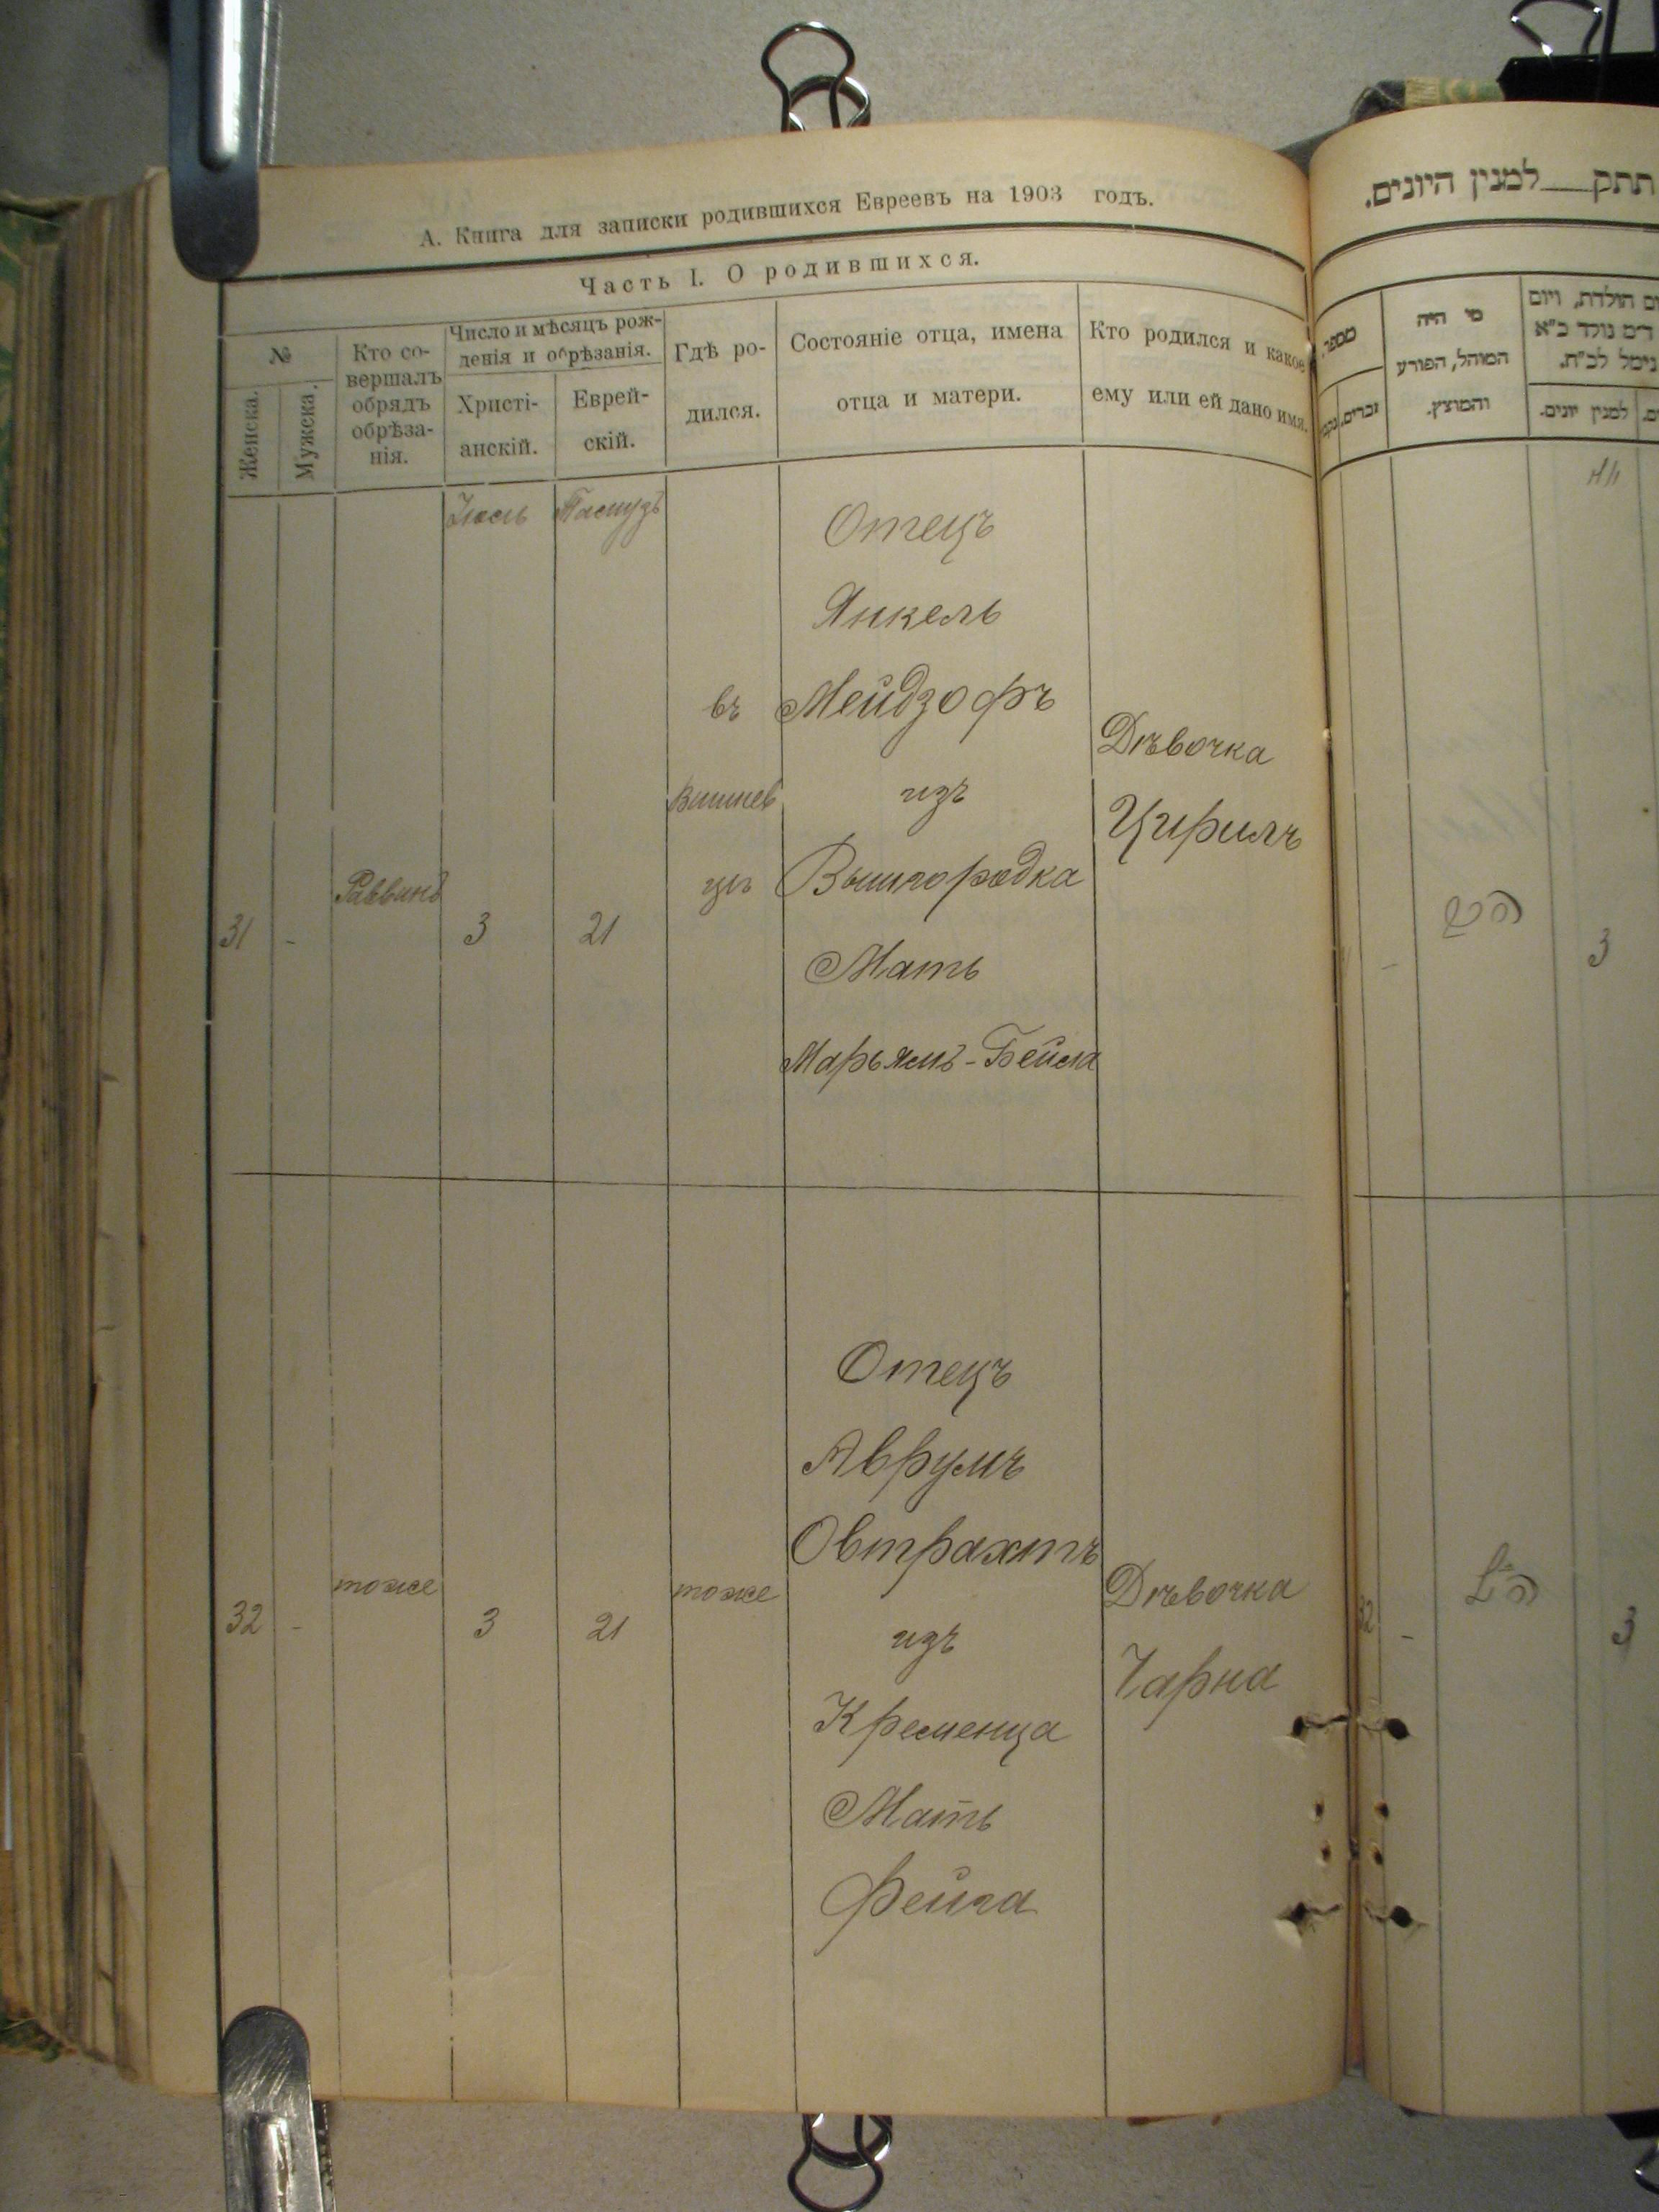 А. Книга для записки родившихся Евреевъ на 1903 годъ.
Часть I. О родившихся.
№
Женска.
Мужска.
Кто со-
вершалъ
обрядъ
обрѣза-
нія.
Число и мѣсяцъ рож-
денія и обрѣзанія.
Христі-
анскій.
Еврей-
скій.
Гдѣ ро-
дился.
Состояніе отца, имена
отца и матери.
Кто родился и какое
ему или ей дано имя.
Іюль
Тамузъ
31
-
Раввинъ
3
21
въ
Вишнев
цѣ
Отецъ
Янкель
Мейдзофъ
изъ
Вышгородка
Мать
Марьямъ-Бейла
Дѣвочка
Цирилъ
32
-
тоже
3
21
тоже
Отецъ
Аврумъ
Овтрахтъ
изъ
Кременца
Мать
Фейга
Дѣвочка
Чарна
תתק למנין היונים.
מספר
זכרים.
מי היה
המוהל, הפורע
והמוצץ.
יום הולדת, ויום
נימל לב"ח.
למנין יונים.
-
3
32
-
3